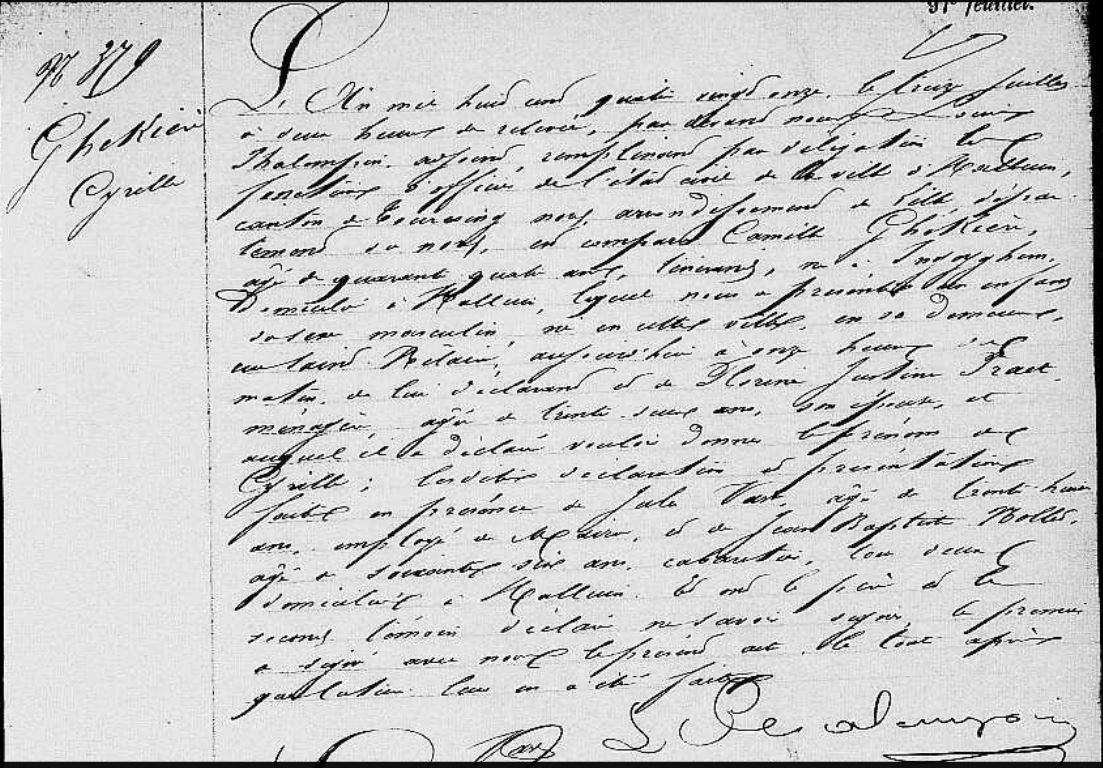 31e feuillet.
N° 379
Ghekière
Cyrille
L'An mil huit cent quatre vingt onze, le treize juillet
à deux heures de relevée, par devant nous Louis
Thalompin, adjoint, remplissant par délégation les
fonctions d'officier de l'état civil de la ville d'Halluin,
canton de Tourcoing nord, arrondissement de Lille, dépar-
tement du nord, est comparu Camille Ghekière,
âgé de quarante quatre ans, tisserand, né à Ingoyghem,
Domicilié à Halluin, lequel nous a présenté un enfant
du sexe masculin, né en cette ville, en sa demeure,
aujourd'hui à onze heures du
matin, de lui déclarant et de Florine Justine Praet,
ménagère, âgée de trente deux ans, son épouse, et
auquel il a déclaré vouloir donner le prénom de
Cyrille; lesdites déclaration et présentation
faites en présence de Jules Vast, âgé de trente
ans, employé de Mairie, et de Jean Baptiste
âgé de soixante six ans, cabaretier, tous deux
domiciliés à Halluin. Et ont le père et le
second témoin déclaré ne savoir signer, le premier
a signé avec nous le présent acte. le tout après
que lecture leur en a été faite